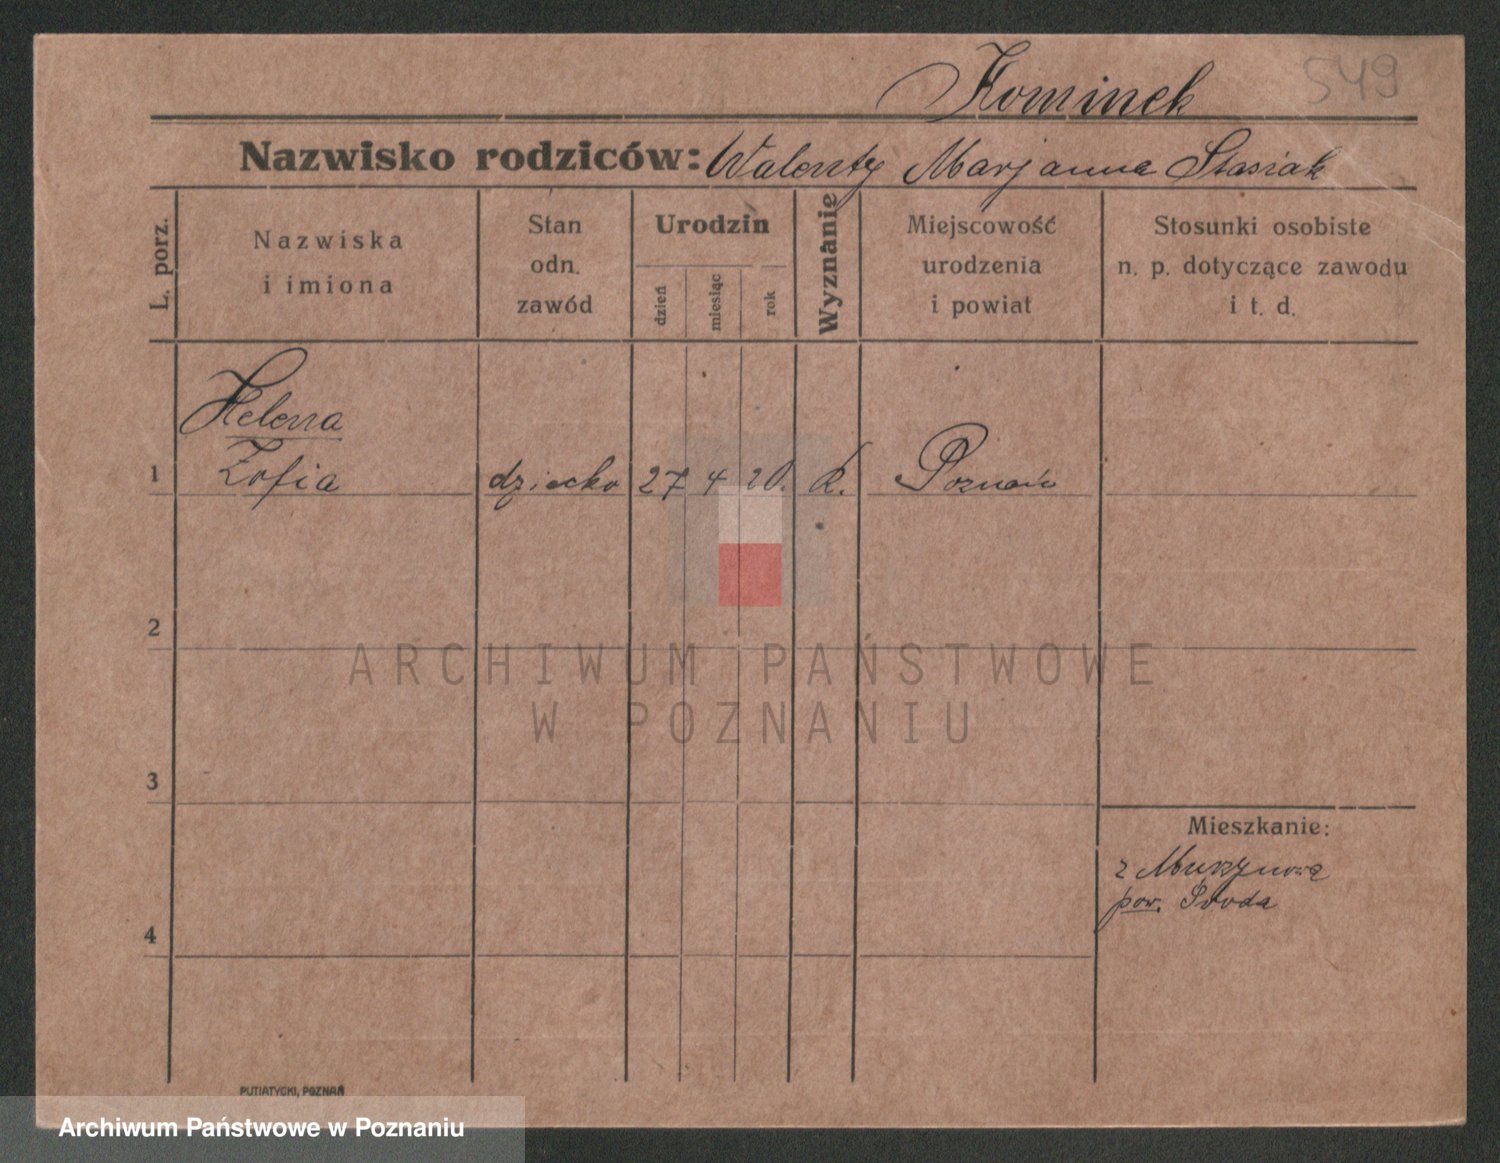 549
Kominek
Nazwisko rodziców: Walenty Marjanna Stasiak
L. porz.
Nazwiska
i imiona
Stan
odn.
zawód
Urodzin
dzień
miesiąc
rok
Wyznanie
Miejscowość
urodzenia
i powiat
Stosunki osobiste
n. p. dotyczące zawodu
i t. d.
Helena
1 Zofia dziecko 27 4 20. k. Poznań
2
ARCHIWUM PAŃSTWOWE
W POZNANIU
3
Mieszkanie:
z Murzynowa
pow. Środa
4
PUTIATYCKI, POZNAŃ
Archiwum Państwowe w Poznaniu